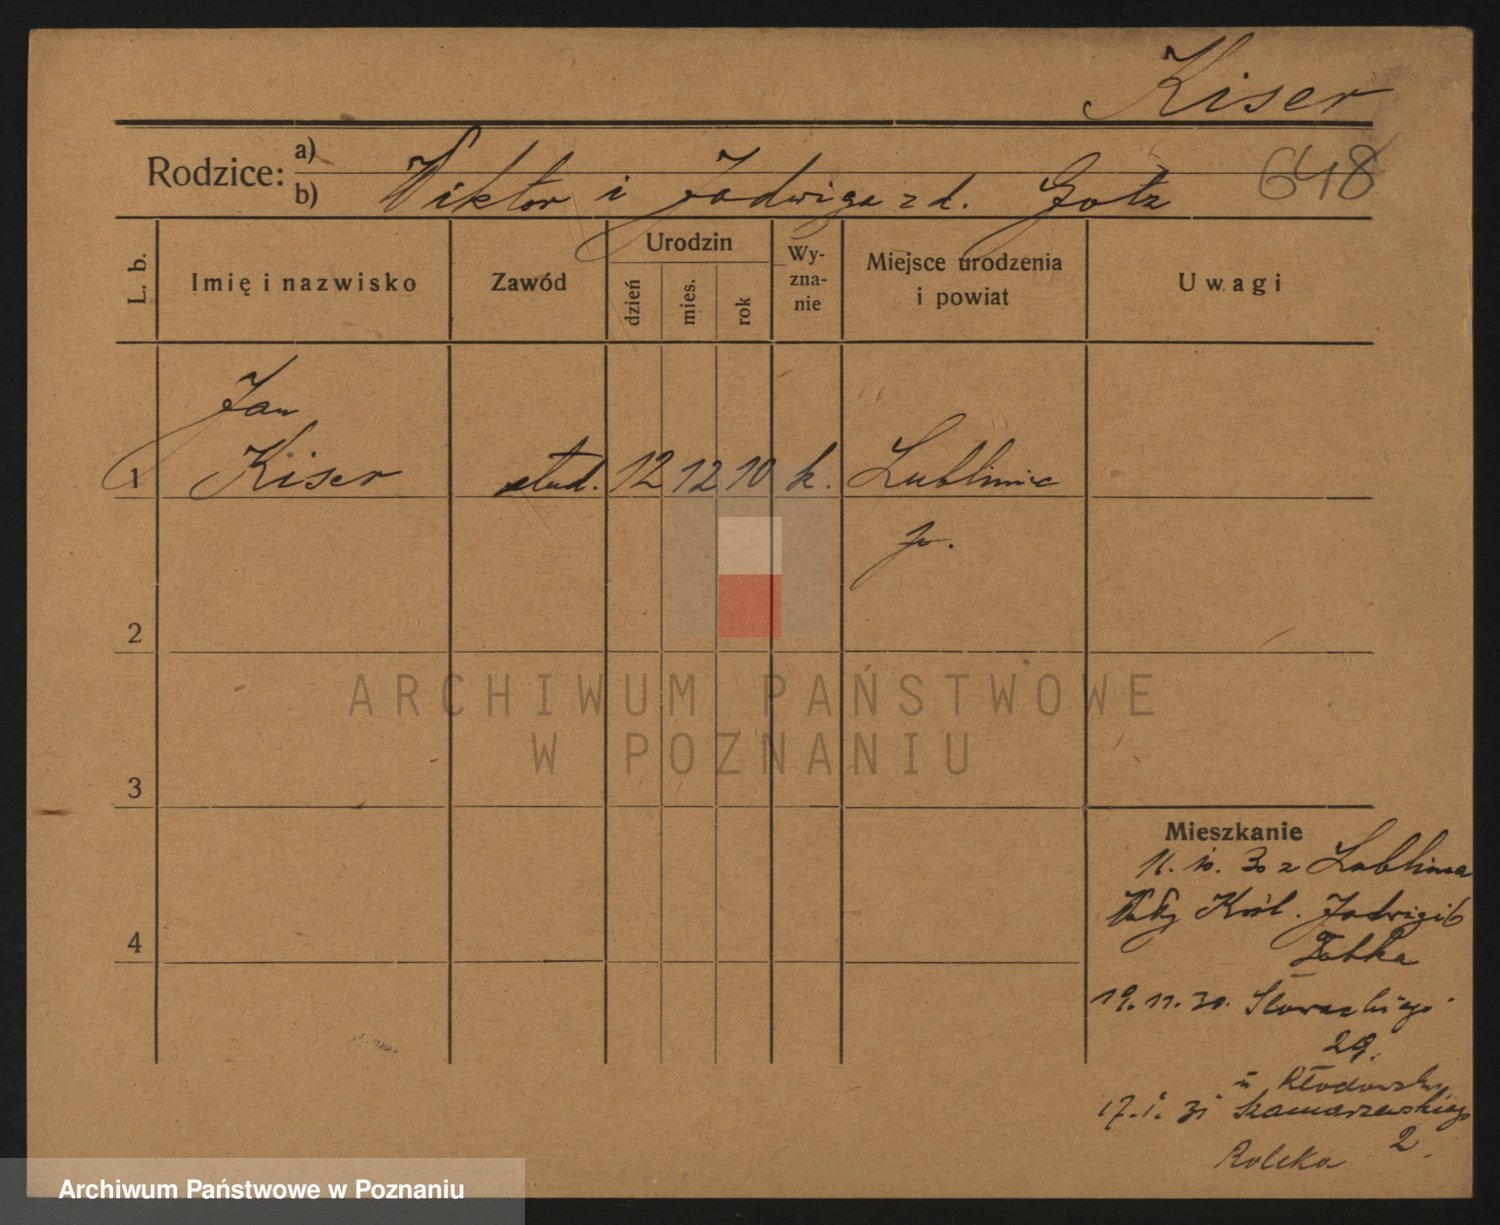 Kiser
648
Rodzice: a)
b) Wiktor i Jadwiga z d. Gołz
L. b. Imię i nazwisko Zawód Urodzin dzień mies. rok Wyznanie Miejsce urodzenia i powiat Uwagi
Jan
1 Kiser stud. 12 12 10 k. Lubliniec
p.
2
ARCHIWUM PAŃSTWOWE
W POZNANIU
3
Mieszkanie
11. 10. 30 z Lublińca
Król. Jadwigi 6
4
19. 11. 30. Słowackiego
29.
17. 1. 31 Szamarzewskiego
2.
Rolcka
Archiwum Państwowe w Poznaniu